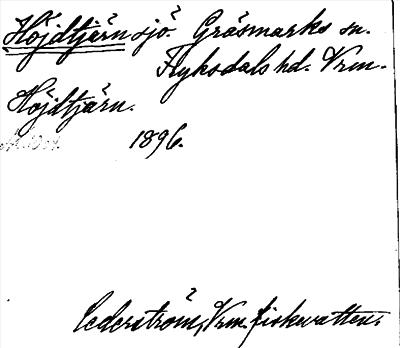 Höjdtjärn sjö. Gräsmarks sn.
Fryksdals hd. Vrm.
Höjdtjärn.
1896.
Cederström, Vrm. fiskevatten.